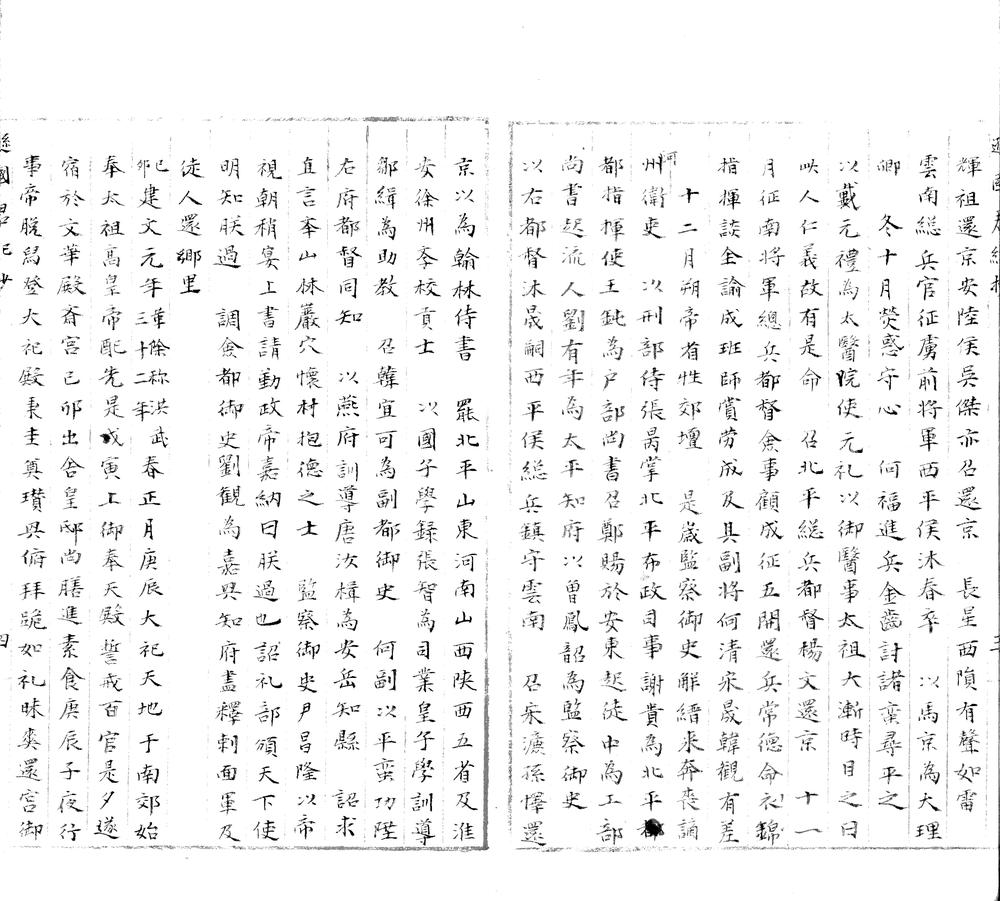 輝祖還京安陸侯吳傑亦召還京　長星西隕有聲如雷
雲南総兵官征虜前將軍西平侯沐春卒　以馬京為大理
卿　冬十月熒惑守心　何福進兵金齒討諸蛮尋平之
以戴元禮為太醫院使元礼以御醫事太祖大漸時目之曰
此人仁義故有是命　召北平総兵都督楊文還京　十一
月征南將軍總兵都督僉事顧成征五開還兵常德命衣錦
指揮談全論成班師賞劳成及其副將何清宋晟韓觀有差
十二月朔帝省性郊壇　是歲監察御史解縉來奔丧謫
河州衛吏　以刑部侍張昺掌北平布政司事謝貴為北平都
都指揮使王鈍為户部尚書召鄭賜於安東起徒中為工部
尚書起流人劉有年為太平知府以曽鳳韶為監察御史
以右都督沐晟嗣西平侯総兵鎮守雲南　召宋濂孫懌還
京以為翰林侍書　罷北平山東河南山西陕西五省及淮
安徐州李校貢士　以國子學録張智為司業皇子學訓導
鄒緝為助教　召韓宜可為副都御史　何副以平蛮功陞
右府都督同知　以燕府訓導唐汝楫為安岳知縣　詔求
直言夲山林巖穴懷材抱德之士　監察御史尹昌隆以帝
視朝稍宴上書請勤政帝嘉納曰朕過也詔礼部頒天下使
明知朕過　調僉都御史劉觀為嘉興知府盡釋刺面軍及
徒人還鄉里
己卯建文元年革除称洪武三十二年春正月庚辰大祀天地于南郊始
奉太祖髙皇帝配先是戊寅上御奉天殿誓戒百官是夕遂
宿於文華殿斎宮己卯出舎皇邸尚膳進素食庚辰子夜行
事帝脫舄登大祀殿秉圭奠瓚興俯拜跪如礼昧爽還宮御